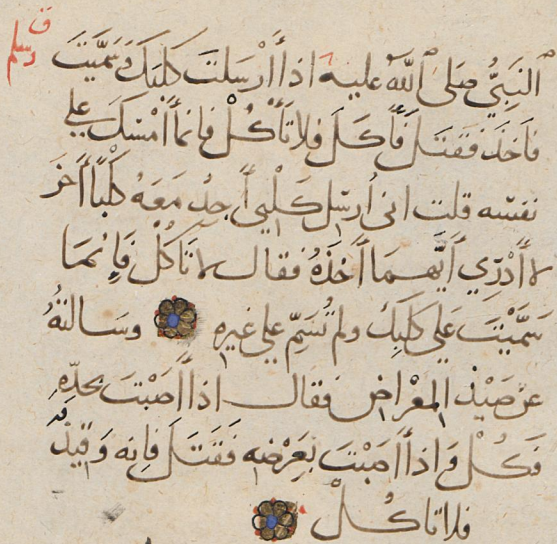 ق
وسلم
النَّبِيُّ صَلى اللَّهُ عليه اذا أَرْسَلتَ كلبَكَ وَسَمَّيْتَ
فاخَذَ فَقَتَلَ فَأَكَلَ فلا تَأْكُلْ فانما أَمْسَكَ علي
نفسه قلت اني أُرسِل كَلْبِي أَجِدُ مَعَهُ كَلْبًا آخَرَ
لا أَدْرِي أَيُّهمَا أَخَذَهُ فقال لا تَاكُلْ فَإِنمَا
سَمَّيْتَ عَلي كَلبِكَ ولم تُسَمِّ علي غيره وسَالتُهُ
عن صَيْدِ المِعْرَاضِ فقال اذا أَصَبْتَ بحدّه
فَكُلْ واذا أَصَبْتَ بِعَرْضِه فَقَتَلَ فانه وَقِيذٌ
فلا تاكُلْ